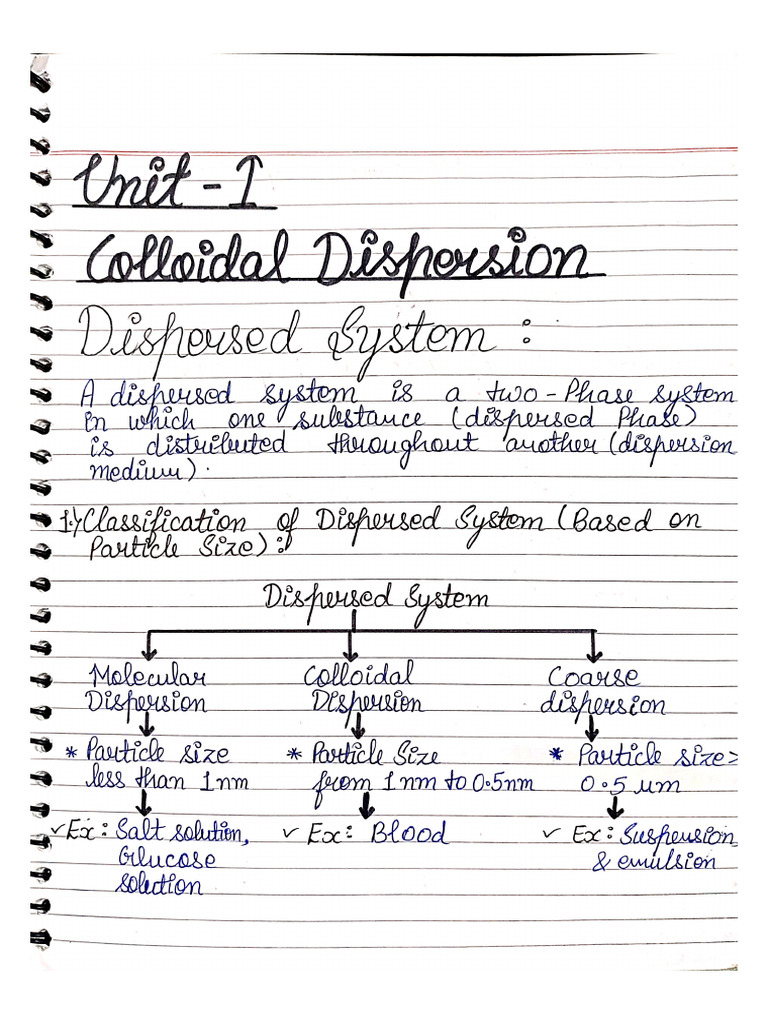 Unit - I
Colloidal Dispersion
Dispersed System :
A dispersed system is a two-Phase system
in which one substance (dispersed Phase)
is distributed throughout another (dispersion
medium).
1.) Classification of Dispersed System (Based on
Particle Size) :
Dispersed System
Molecular Dispersion
Colloidal Dispersion
Coarse dispersion
* Particle size less than 1nm
* Particle Size from 1nm to 0.5nm
* Particle size > 0.5 um
✓ Ex: Salt solution, Glucose solution
✓ Ex: Blood
✓ Ex: Suspension & emulsion